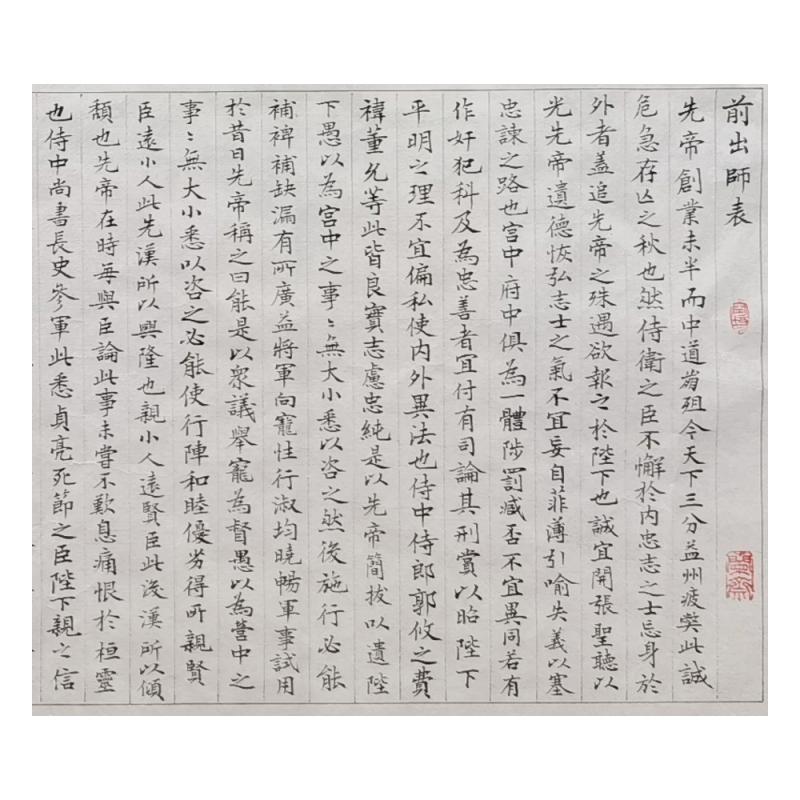 前出師表
先帝創業未半而中道崩殂今天下三分益州疲弊此誠
危急存亡之秋也然侍衛之臣不懈於內忠志之士忘身於
外者蓋追先帝之殊遇欲報之於陛下也誠宜開張聖聽以
光先帝遺德恢弘志士之氣不宜妄自菲薄引喻失義以塞
忠諫之路也宮中府中俱為一體陟罰臧否不宜異同若有
作奸犯科及為忠善者宜付有司論其刑賞以昭陛下
平明之理不宜偏私使內外異法也侍中侍郎郭攸之費
禕董允等此皆良實志慮忠純是以先帝簡拔以遺陛
下愚以為宮中之事〻無大小悉以咨之然後施行必能
補裨補缺漏有所廣益將軍向寵性行淑均曉暢軍事試用
於昔日先帝稱之曰能是以眾議舉寵為督愚以為營中之
事〻無大小悉以咨之必能使行陣和睦優劣得所親賢
臣遠小人此先漢所以興隆也親小人遠賢臣此後漢所以傾
頹也先帝在時每與臣論此事未嘗不歎息痛恨於桓靈
也侍中尚書長史參軍此悉貞亮死節之臣陛下親之信